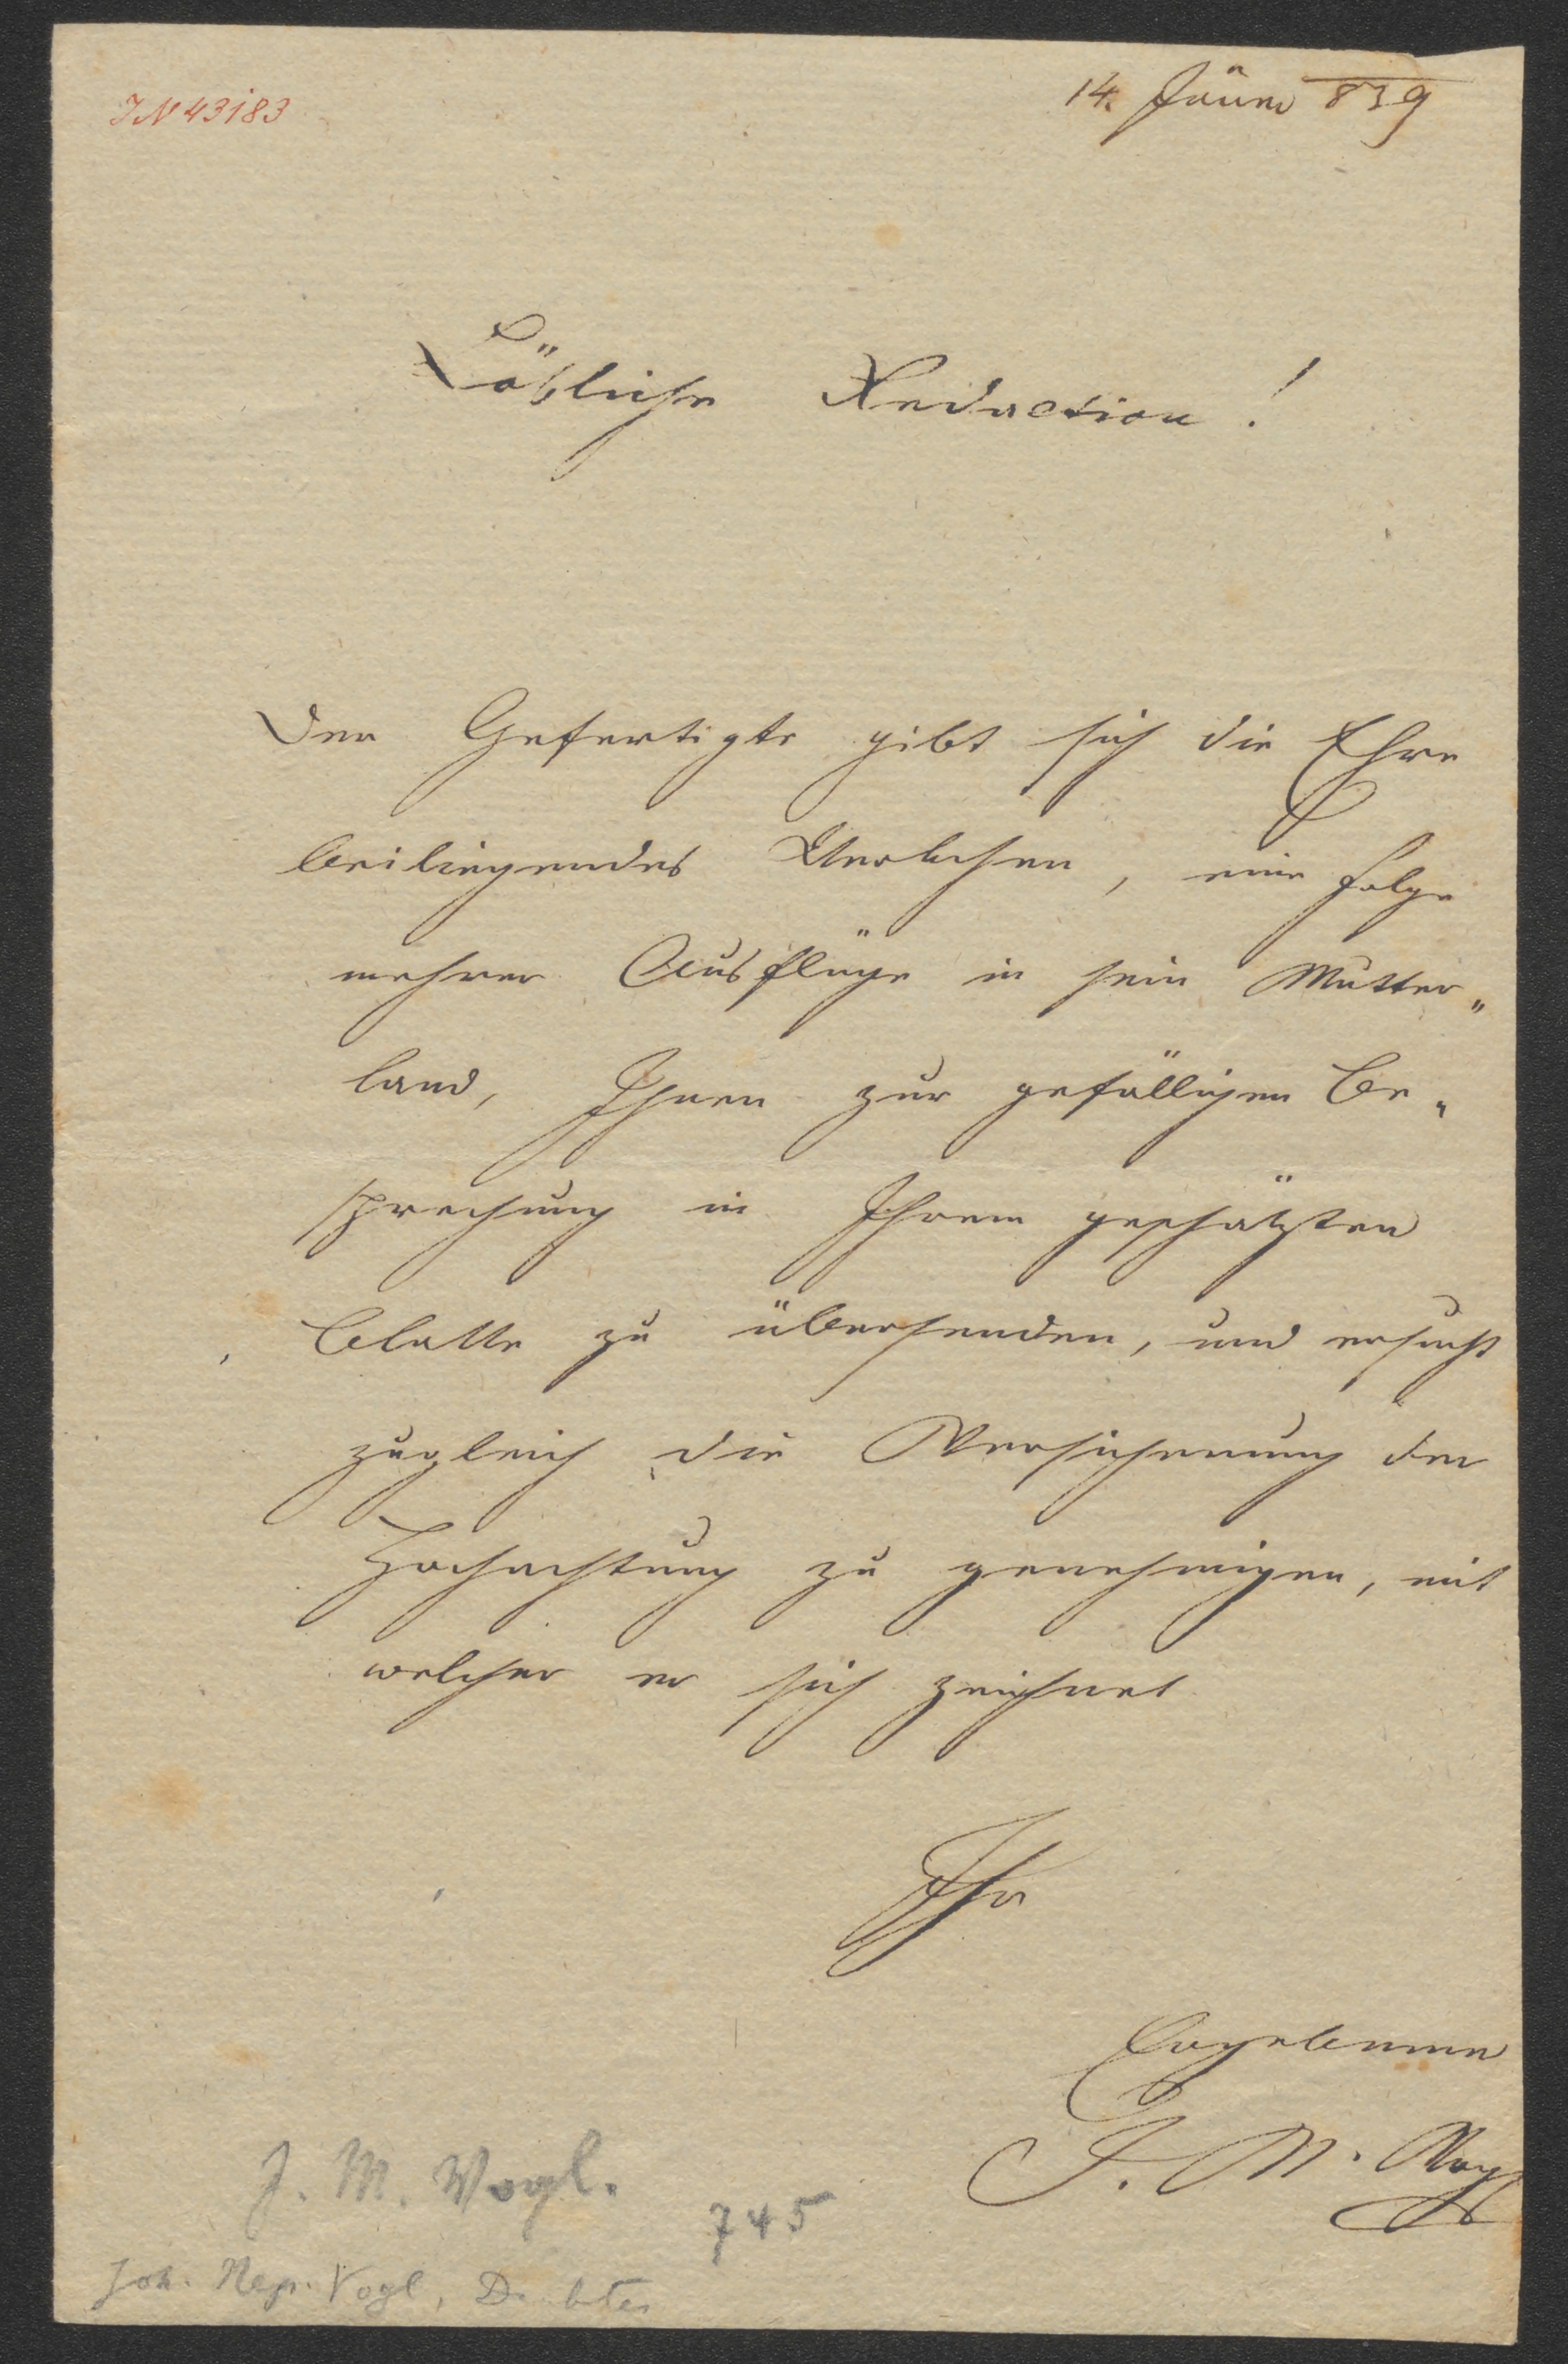 IN 43183
14. Jänner 839
Löbliche Redaction!
Der Gefertigte gibt sich die Ehre
beiliegendes Werkchen, eine Folge
mehrer Ausflüge in sein Mutter„
land, Ihnen zur gefälligen Be„
sprechung in Ihrem geschätzten
Blatte zu übersenden, und ersucht
zugleich die Versicherung der
Hochachtung zu genehmigen, mit
welcher er sich zeichnet
Ihr
Ergebener
J. N. Vogl
J. M. Vogl.
745
Joh. Nep. Vogl, Dichter